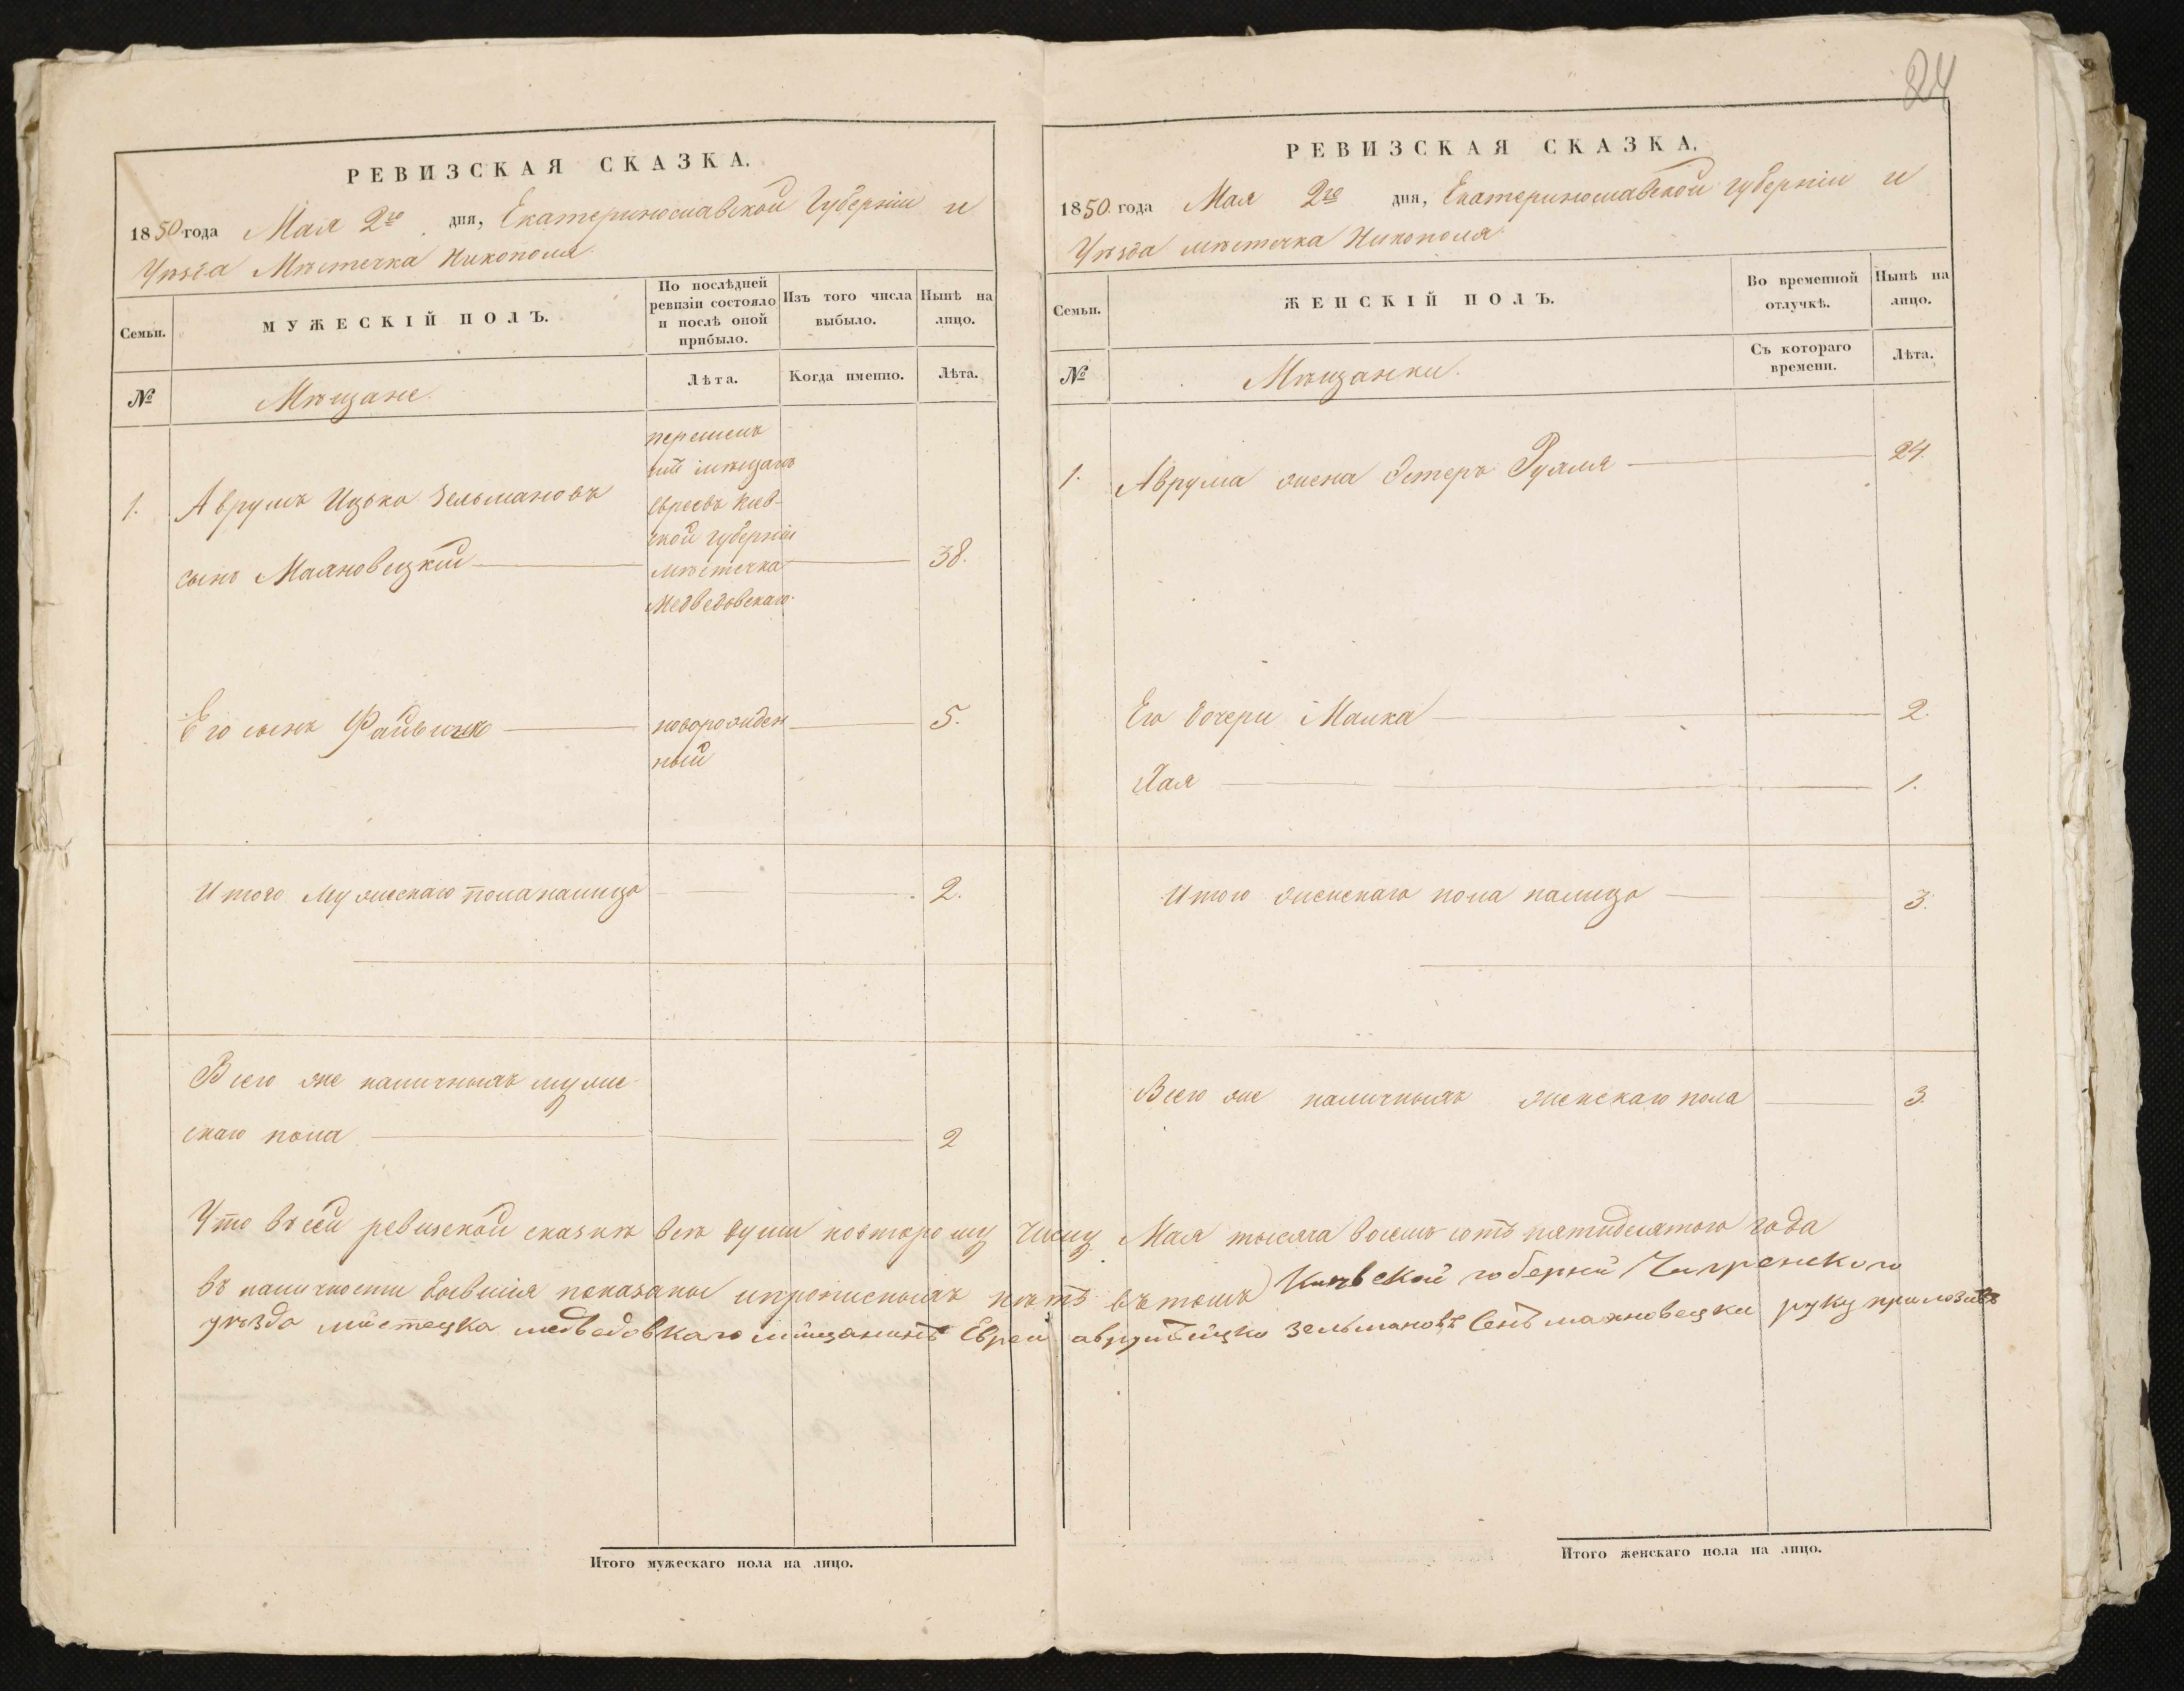 24
РЕВИЗСКАЯ СКАЗКА.
1850 года Мая 2го дня, Екатеринославской Губерніи и
Уѣзда Мѣстечка Никополя
Семьи.
МУЖЕСКІЙ ПОЛЪ.
По послѣдней ревизіи состояло и послѣ оной прибыло.
Изъ того числа выбыло.
Нынѣ на лицо.
№
Мѣщане.
Лѣта.
Когда именно.
Лѣта.
1. Аврумъ Ицько Зельмановъ
сынъ Махновецкий 38.
мѣщанъ
Евреевъ Кіев-
ской губерніи
мѣстечка
Медведовскаго.
Его сынъ 5.
новорожден
ный
Итого мужескаго пола налицо 2.
Всего же наличныхъ муже
скаго пола 2
РЕВИЗСКАЯ СКАЗКА.
1850. года Мая 2го дня, Екатеринославской губерніи и
Уѣзда мѣстечка Никополя
Семьи.
ЖЕНСКІЙ ПОЛЪ.
Во временной отлучкѣ.
Нынѣ на лицо.
№
Мѣщанки.
Съ котораго времени.
Лѣта.
1. Аврума жена Эстеръ Рухля 24.
Его дочери Малка 2.
Хая 1.
Итого женскаго пола налицо 3.
Всего же наличныхъ женскаго пола 3.
Что въ сей ревизской сказкѣ всѣ души повторому числу Мая тысяча восемь сотъ пятидесятого года
въ наличности бывшія показаны ипрописныхъ нѣтъ вътомъ Киевской губерніи
уѣзда мистецка медведовкаго мищанинъ Еврей Зельмановъ Сенъ махновецки руку приложивъ
Итого мужескаго пола на лицо.
Итого женскаго пола на лицо.